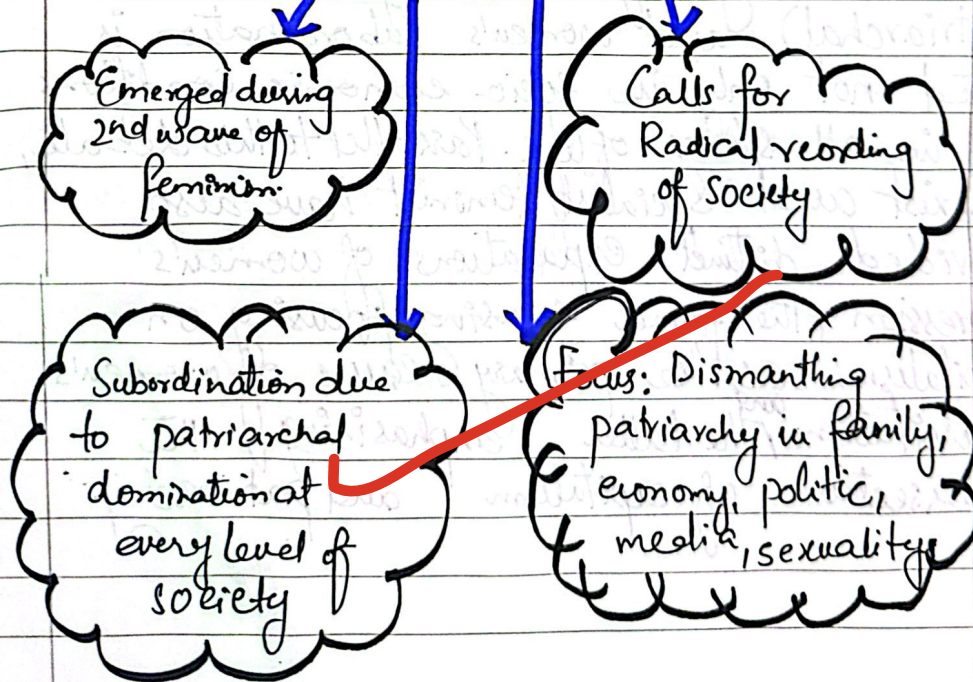 Emerged during
2nd wave of
feminism.
Calls for
Radical reording
of society
Subordination due
to patriarchal
domination at
every level of
society
Focus: Dismanthing
patriarchy in family,
economy, politic,
media, sexuality